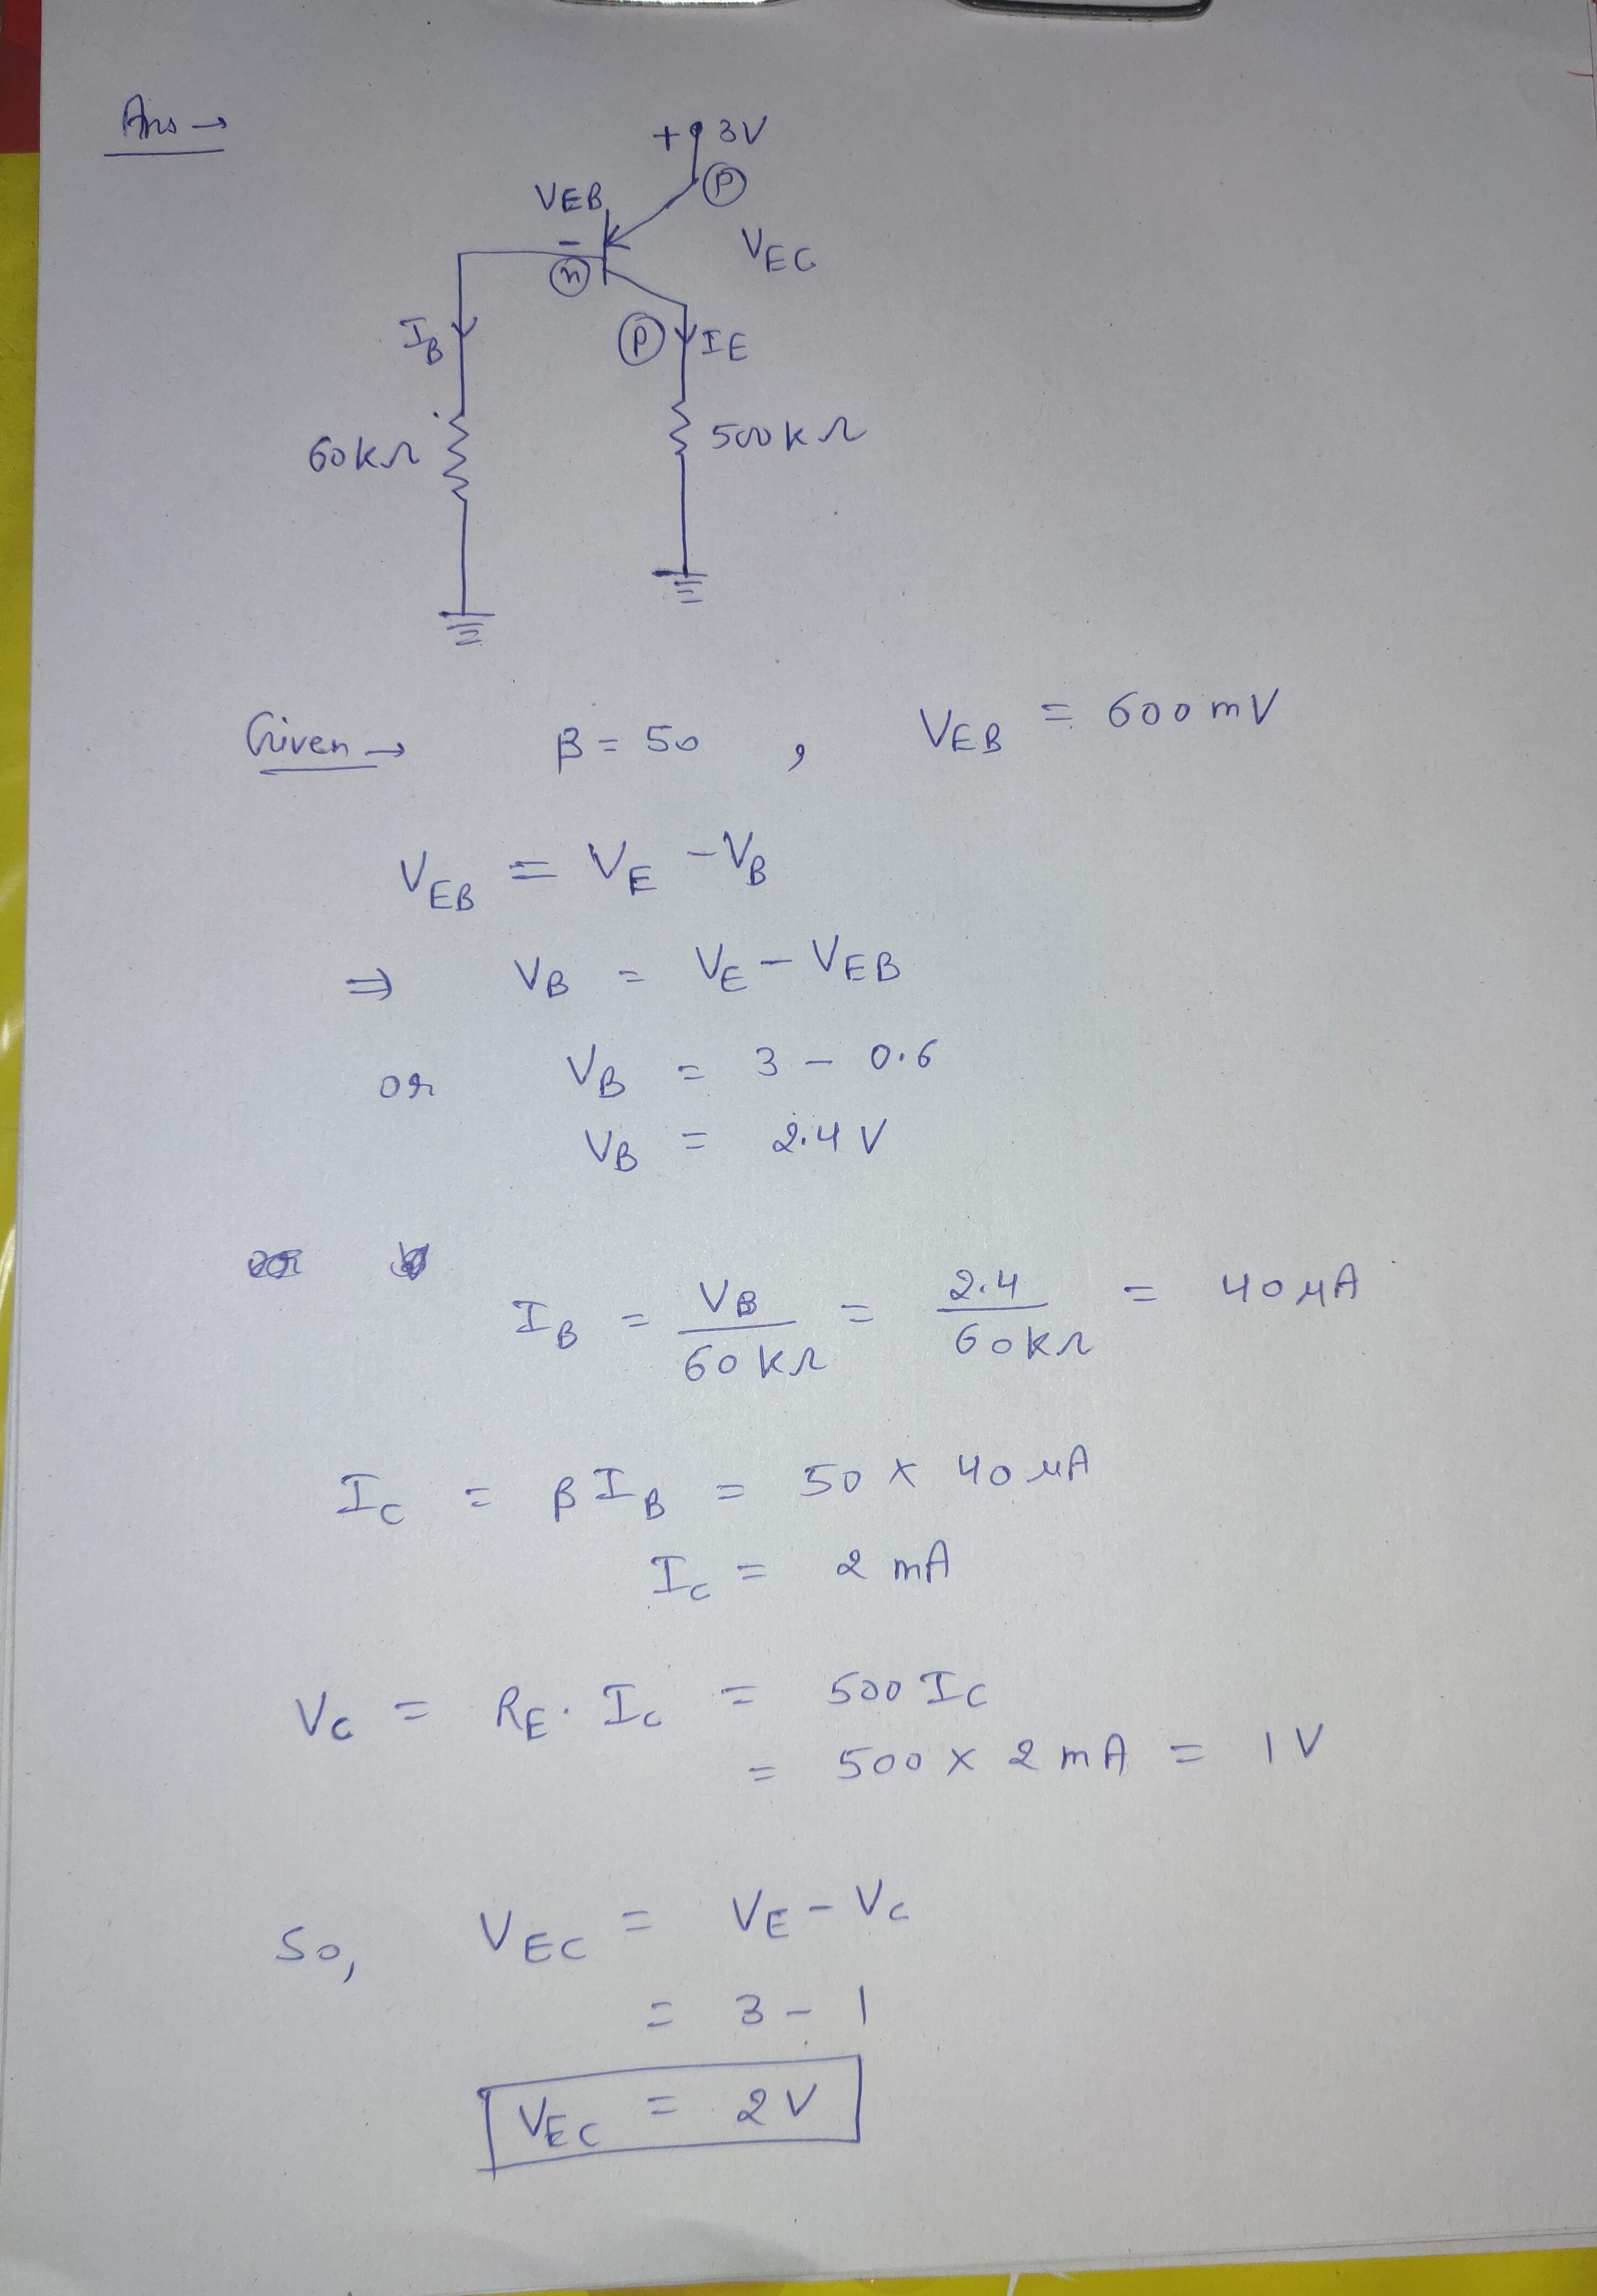 Ans →
+ 3V
P
VEB
-
n
VEC
IB
P IE
60KΩ
500KΩ
Given → β = 50 , VEB = 600mV
VEB = VE - VB
⇒ VB = VE - VEB
or VB = 3 - 0.6
VB = 2.4 V
IB = VB / 60KΩ = 2.4 / 60KΩ = 40 μA
IC = βIB = 50 × 40 μA
IC = 2 mA
VC = RE. IC = 500 IC
= 500 × 2 mA = 1V
So, VEC = VE - VC
= 3 - 1
VEC = 2V